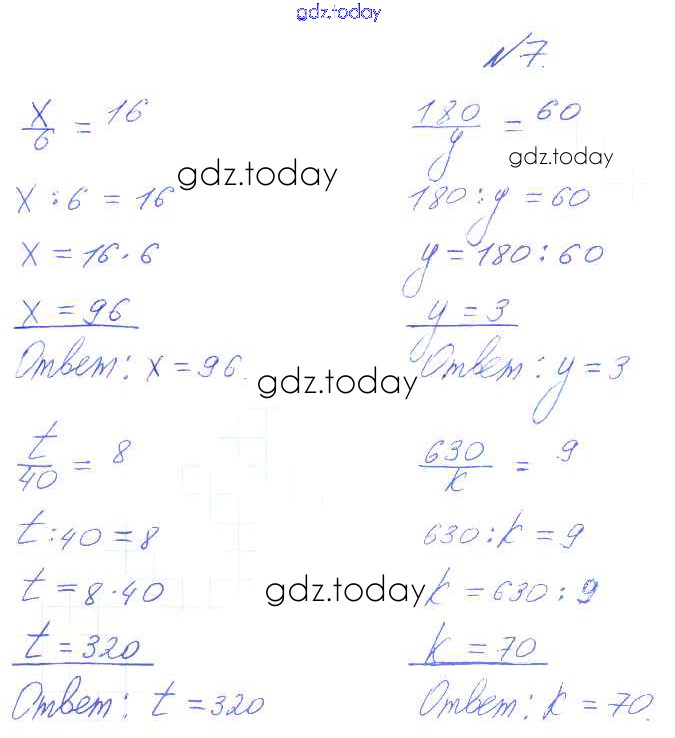 gdz.today
№7.
x/6 = 16
x : 6 = 16
x = 16 · 6
x = 96
Ответ: x = 96.
180/y = 60
180 : y = 60
y = 180 : 60
y = 3
Ответ: y = 3
gdz.today
gdz.today
gdz.today
t/40 = 8
t : 40 = 8
t = 8 · 40
t = 320
Ответ: t = 320
630/k = 9
630 : k = 9
k = 630 : 9
k = 70
Ответ: k = 70.
gdz.today